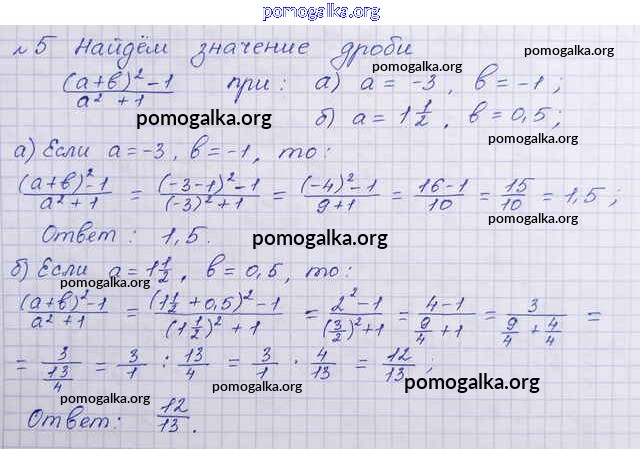 pomogalka.org
№5 Найдём значение дроби
pomogalka.org
pomogalka.org
((a+b)²-1)/(a²+1) при: а) a = -3, b = -1;
pomogalka.org
б) a = 1 1/2, b = 0,5;
pomogalka.org
а) Если a = -3, b = -1, то:
((a+b)²-1)/(a²+1) = ((-3-1)²-1)/((-3)²+1) = ((-4)²-1)/(9+1) = (16-1)/10 = 15/10 = 1,5;
pomogalka.org
Ответ: 1,5.
pomogalka.org
б) Если a = 1 1/2, b = 0,5, то:
pomogalka.org
((a+b)²-1)/(a²+1) = ((1 1/2 + 0,5)²-1)/((1 1/2)²+1) = (2²-1)/((3/2)²+1) = (4-1)/(9/4+1) = 3/(9/4+4/4) =
= 3/(13/4) = 3/1 : 13/4 = 3/1 · 4/13 = 12/13;
pomogalka.org
pomogalka.org
pomogalka.org
Ответ: 12/13.